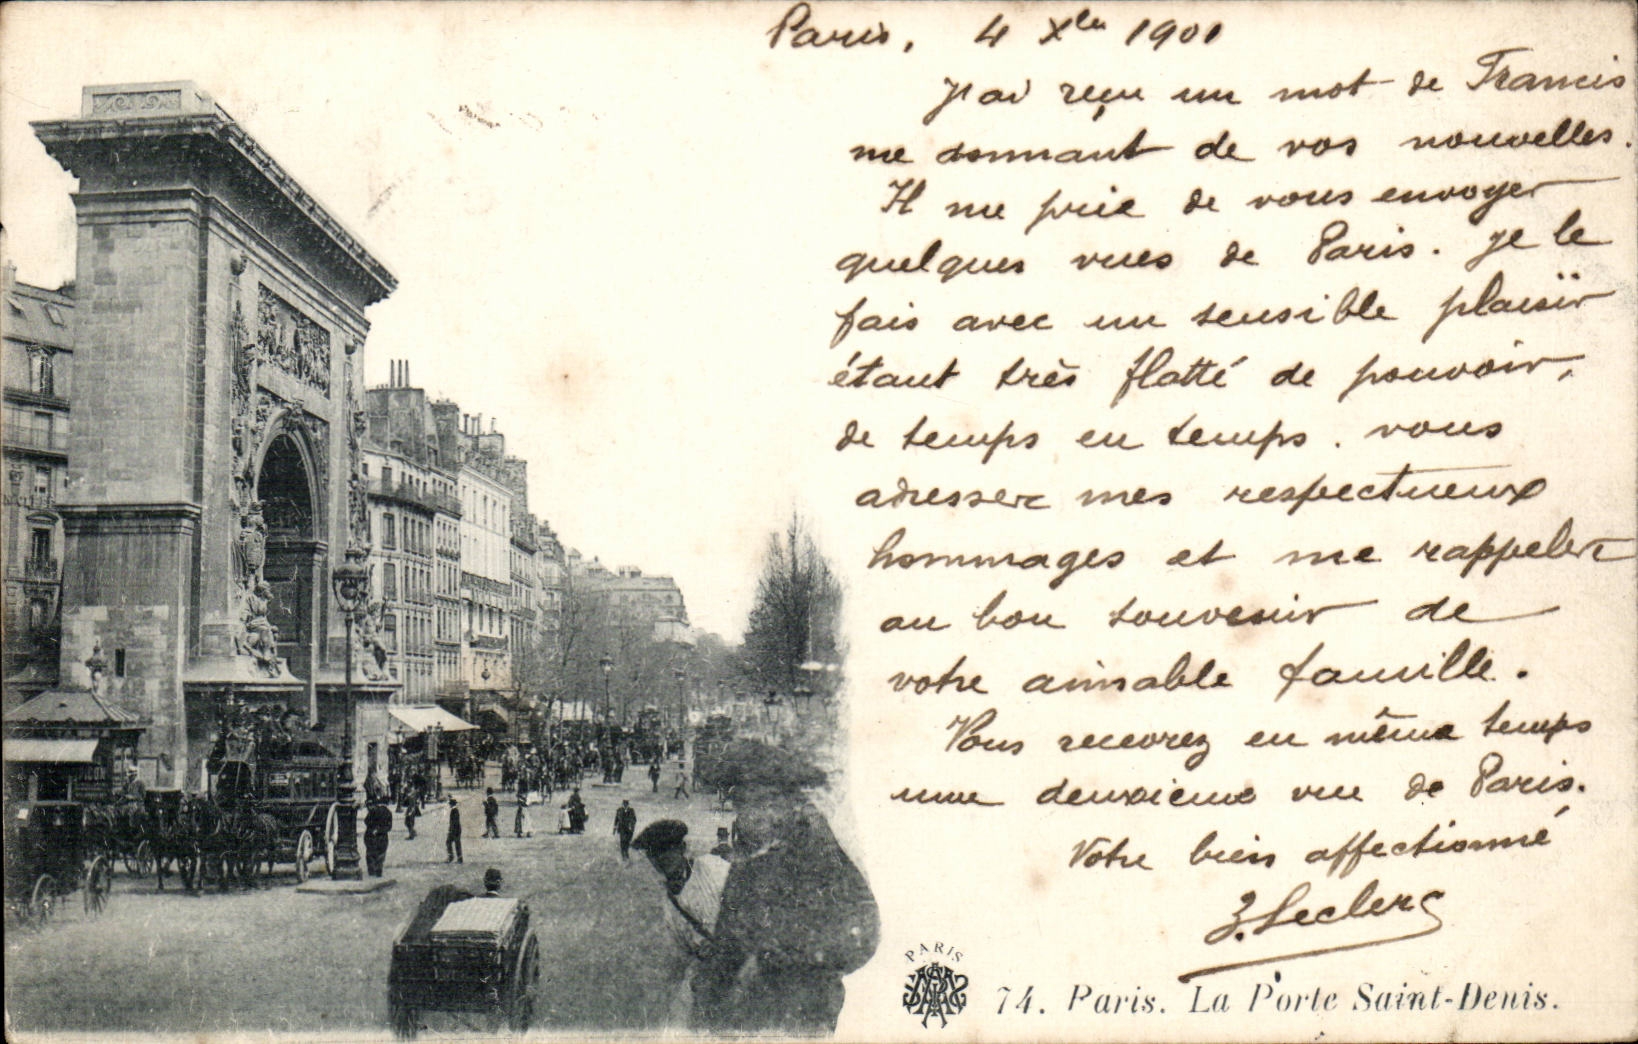 Paris, 4 Xbre 1901
J'ai reçu un mot de Francis
me donnant de vos nouvelles.
Il me prie de vous envoyer
quelques vues de Paris. je le
fais avec un sensible plaisir
étant très flatté de pouvoir,
de temps en temps, vous
adresser mes respectueux
hommages et me rappeler
au bon souvenir de
votre aimable famille.
Vous recevrez en même temps
une deuxième vue de Paris.
Votre bien affectionné
J. Leclerc
PARIS
74. Paris. La Porte Saint-Denis.